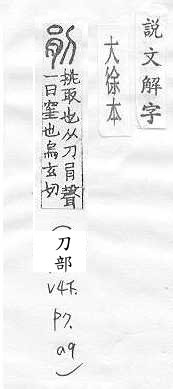 說文解字
大徐本
剈
挑取也从刀肙聲
一曰窐也烏玄切
(刀部
V4下.
P7.
a9)